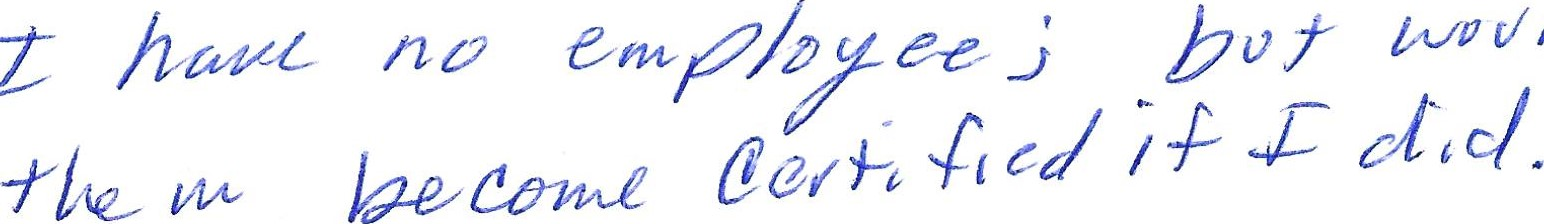 I have no employees; but
them become certified if I did.